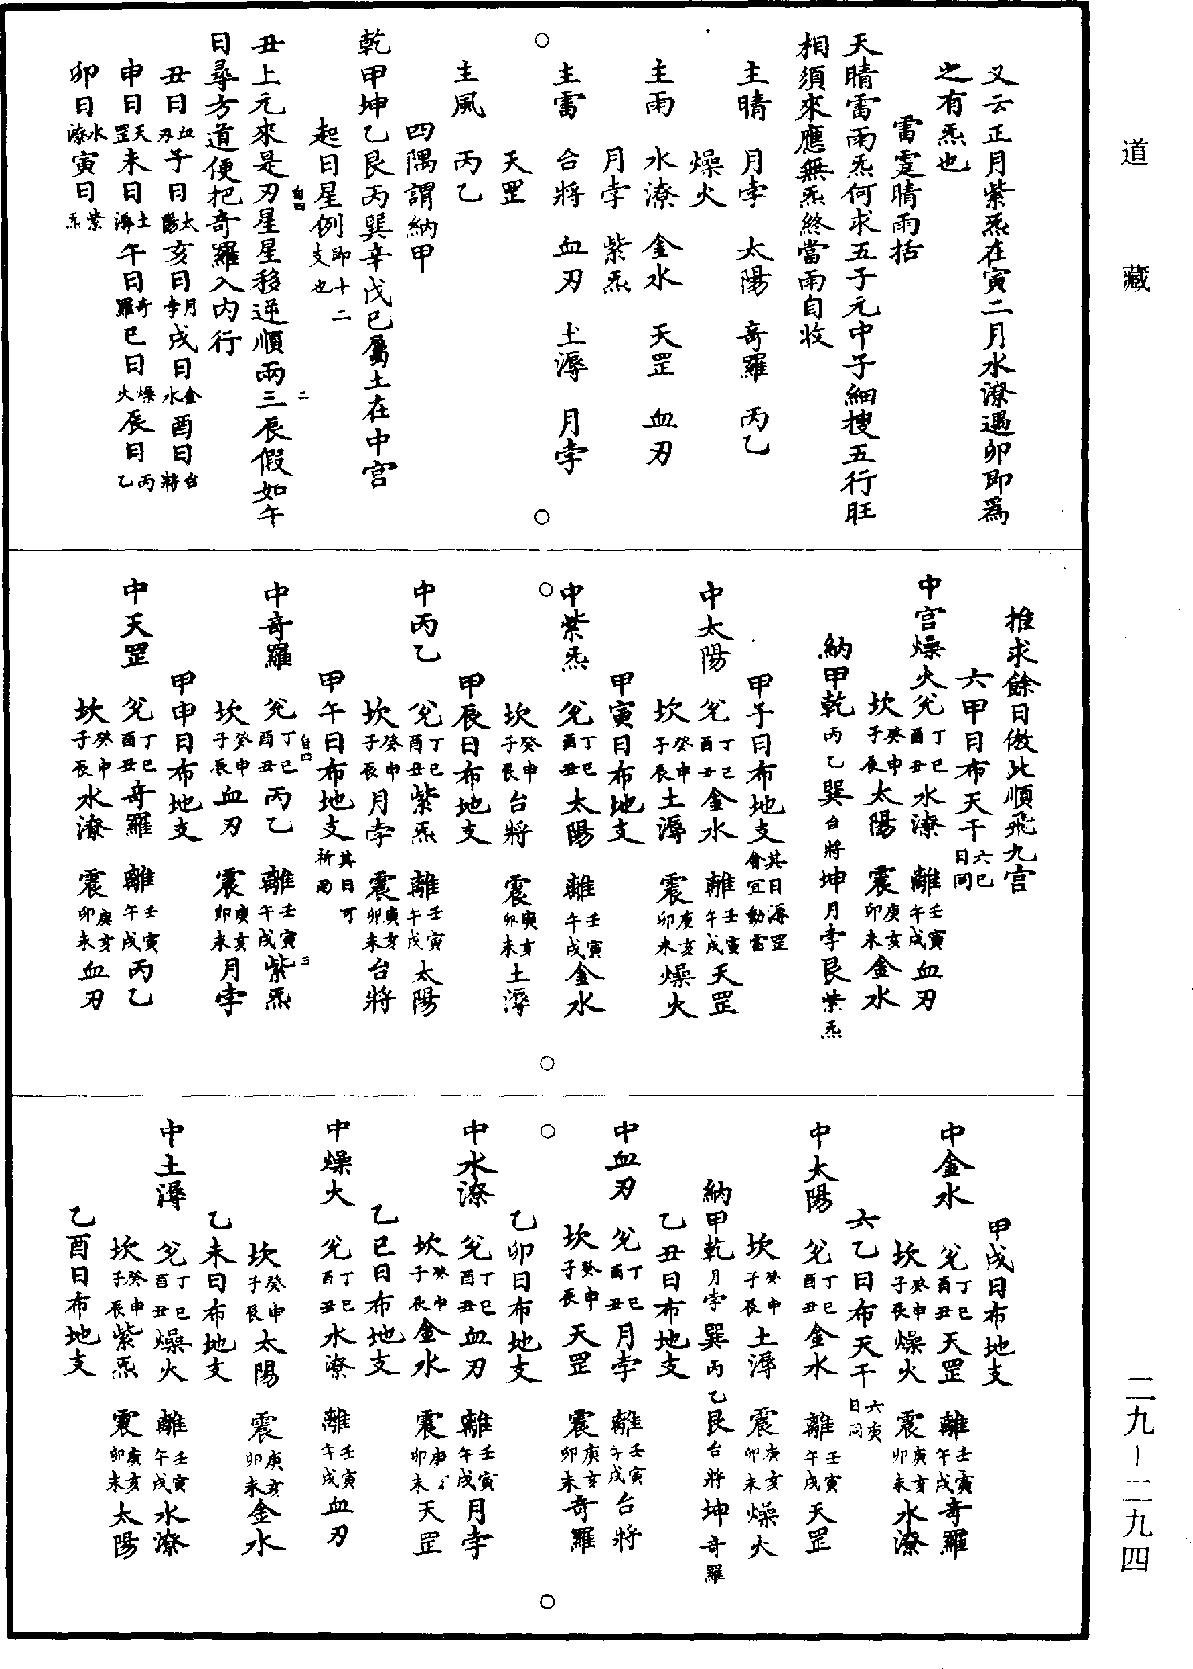 道藏
又云正月紫炁在寅二月水潦遇卯即爲
之有炁也
雷霆晴雨括
天晴雷雨炁何求五子元中子細搜五行旺
相須來應無炁終當雨自收
主晴　月孛　太陽　奇羅　丙乙
燥火
主雨　水潦　金水　天罡　血刃
月孛　紫炁
主雷　台將　血刃　土潯　月孛
天罡
主風　丙乙
四隅謂納甲
乾甲坤乙艮丙巽辛戊巳屬土在中宫
起日星例即十二支也
丑上元來是刃星星移逆順兩三辰假如午
日尋方道便把奇羅入内行
丑日血刃子日太陽亥日月孛戌日金水酉日台將
申日天罡未日土潯午日奇羅巳日燥火辰日丙乙
卯日水潦寅日紫炁
推求餘日倣此順飛九宫
六甲日布天干六巳日同
中宫燥火兊丁巳酉丑水潦　離壬寅午戌血刃
坎癸申子辰太陽　震庚亥卯未金水
納甲乾丙乙巽台將坤月孛艮紫炁
甲子日布地支其日潯罡會宜動雷
中太陽　兊丁巳酉丑金水　離壬寅午戌天罡
坎癸申子辰土潯　震庚亥卯未燥火
甲寅日布地支
中紫炁　兊丁巳酉丑太陽　離壬寅午戌金水
坎癸申子辰台將　震庚亥卯未土潯
甲辰日布地支
中丙乙　兊丁巳酉丑紫炁　離壬寅午戌太陽
坎癸申子辰月孛　震庚亥卯未台將
甲午日布地支其日可祈雨
中奇羅　兊丁巳酉丑丙乙　離壬寅午戌紫炁
坎癸申子辰血刃　震庚亥卯未月孛
甲申日布地支
中天罡　兊丁巳酉丑奇羅　離壬寅午戌丙乙
坎癸申子辰水潦　震庚亥卯未血刃
甲戌日布地支
中金水　兊丁巳酉丑天罡　離壬寅午戌奇羅
坎癸申子辰燥火　震庚亥卯未水潦
六乙日布天干六庚日同
中太陽　兊丁巳酉丑金水　離壬寅午戌天罡
坎癸申子辰土潯　震庚亥卯未燥火
納甲乾月孛巽丙乙艮台將坤奇羅
乙丑日布地支
中血刃　兊丁巳酉丑月孛　離壬寅午戌台將
坎癸申子辰天罡　震庚亥卯未奇羅
乙卯日布地支
中水潦　兊丁巳酉丑血刃　離壬寅午戌月孛
坎癸申子辰金水　震庚卯未天罡
乙巳日布地支
中燥火　兊丁巳酉丑水潦　離壬寅午戌血刃
坎癸申子辰太陽　震庚亥卯未金水
乙未日布地支
中土潯　兊丁巳酉丑燥火　離壬寅午戌水潦
坎癸申子辰紫炁　震庚亥卯未太陽
乙酉日布地支
二九－二九四